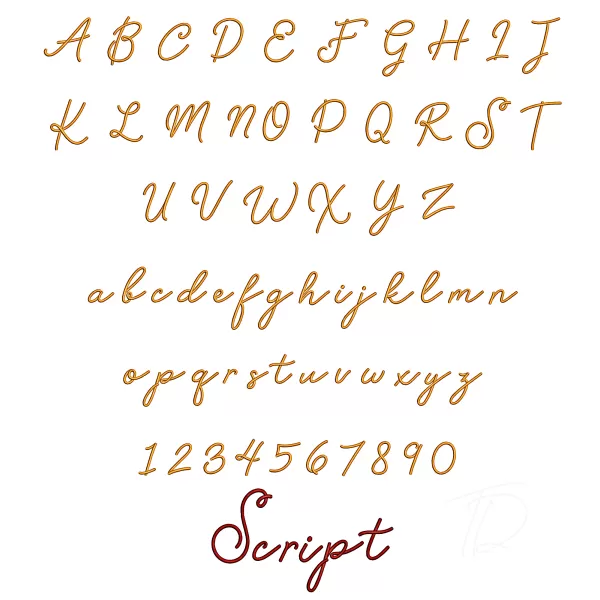 A B C D E F G H I J
K L M N O P Q R S T
U V W X Y Z
a b c d e f g h i j k l m n
o p q r s t u v w x y z
1 2 3 4 5 6 7 8 9 0
Script